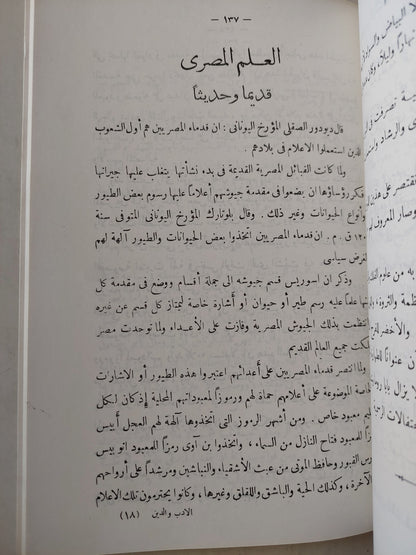 — ١٣٧ —
العلم المصرى
قديما وحديثاً
قال ديودور الصقلى المؤرخ اليونانى : ان قدماء المصريين هم أول الشعوب
الذين استعملوا الاعلام فى بلادهم .
ولما كانت القبائل المصرية القديمة فى بدء نشأتها يتغلب عليها جيرانها
فكر رؤساؤها ان يضعوا فى مقدمة جيوشهم أعلاما عليها رسوم بعض الطيور
وأنواع الحيوانات وغير ذلك . وقال بلوتارك المؤرخ اليونانى المتوفى سنة
ق . م . ان قدماء المصريين اتخذوا بعض الحيوانات والطيور آلهة لهم
لغرض سياسى
وذكر ان اسوريس قسم جيوشه الى جملة أقسام ووضع فى مقدمة كل
منها علماً عليه رسم طير أو حيوان أو أشارة خاصة لتمتاز كل قسم عن غيره
فانتظمت بذلك الجيوش المصرية وفازت على الأعداء ولما توحدت مصر
ملكت جميع العالم القديم
ولما انتصر قدماء المصريين على أعدائهم اعتبروا هذه الطيور أو الاشارات
الخاصة الموضوعة على أعلامهم حماة لهم ورموزاً لمعبوداتهم المحلية إذ كان لكل
معبود خاص . ومن أشهر الرموز التى اتخذوها آلهة لهم العجل أبيس
رمزاً للمعبود فتاح النازل من السماء ، واتخذوا بن آوى رمزاً للمعبود انوبيس
حارس القبور وحافظ الموتى من عبث الأشقياء والنباشين ومرشداً على أرواحهم
الآخرة ، وكذلك الحية والباشق واللقلق وغيرها ، وكانوا يحترمون تلك الاعلام
(١٨) الادب والدين